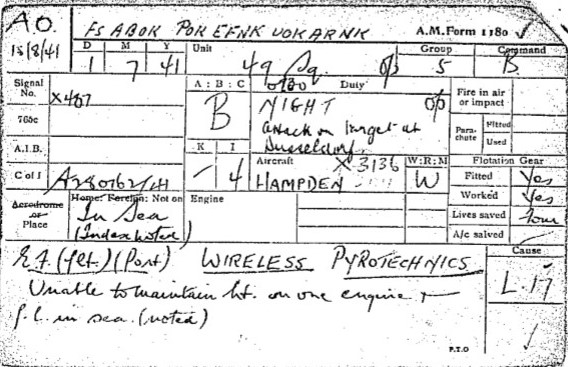 AO.
15/8/41
FS ABOK POREFNK UOKARNK
A.M. Form 1180
D M Y
1 7 41
Unit
49 Sq.
Group
5
Command
B.
Signal No.
X407
765c
A.I.B.
C of I
A280762/41
A : B : C
B
Duty
NIGHT
Attack on target at
Dusseldorf
Op
Fire in air or impact
Parachute
Fitted
Used
K I
- 4
Aircraft
X3136
HAMPDEN
W:R:M
W
Flotation Gear
Fitted Yes
Worked Yes
Lives saved four
A/c salved
Aerodrome or Place
Home: Foreign: Not on
In Sea
(Index noted)
Engine
E.F. (flt.) (Port) WIRELESS PYROTECHNICS
Cause
L.17
Unable to maintain ht. on one engine &
f.l. in sea. (noted)
P.T.O